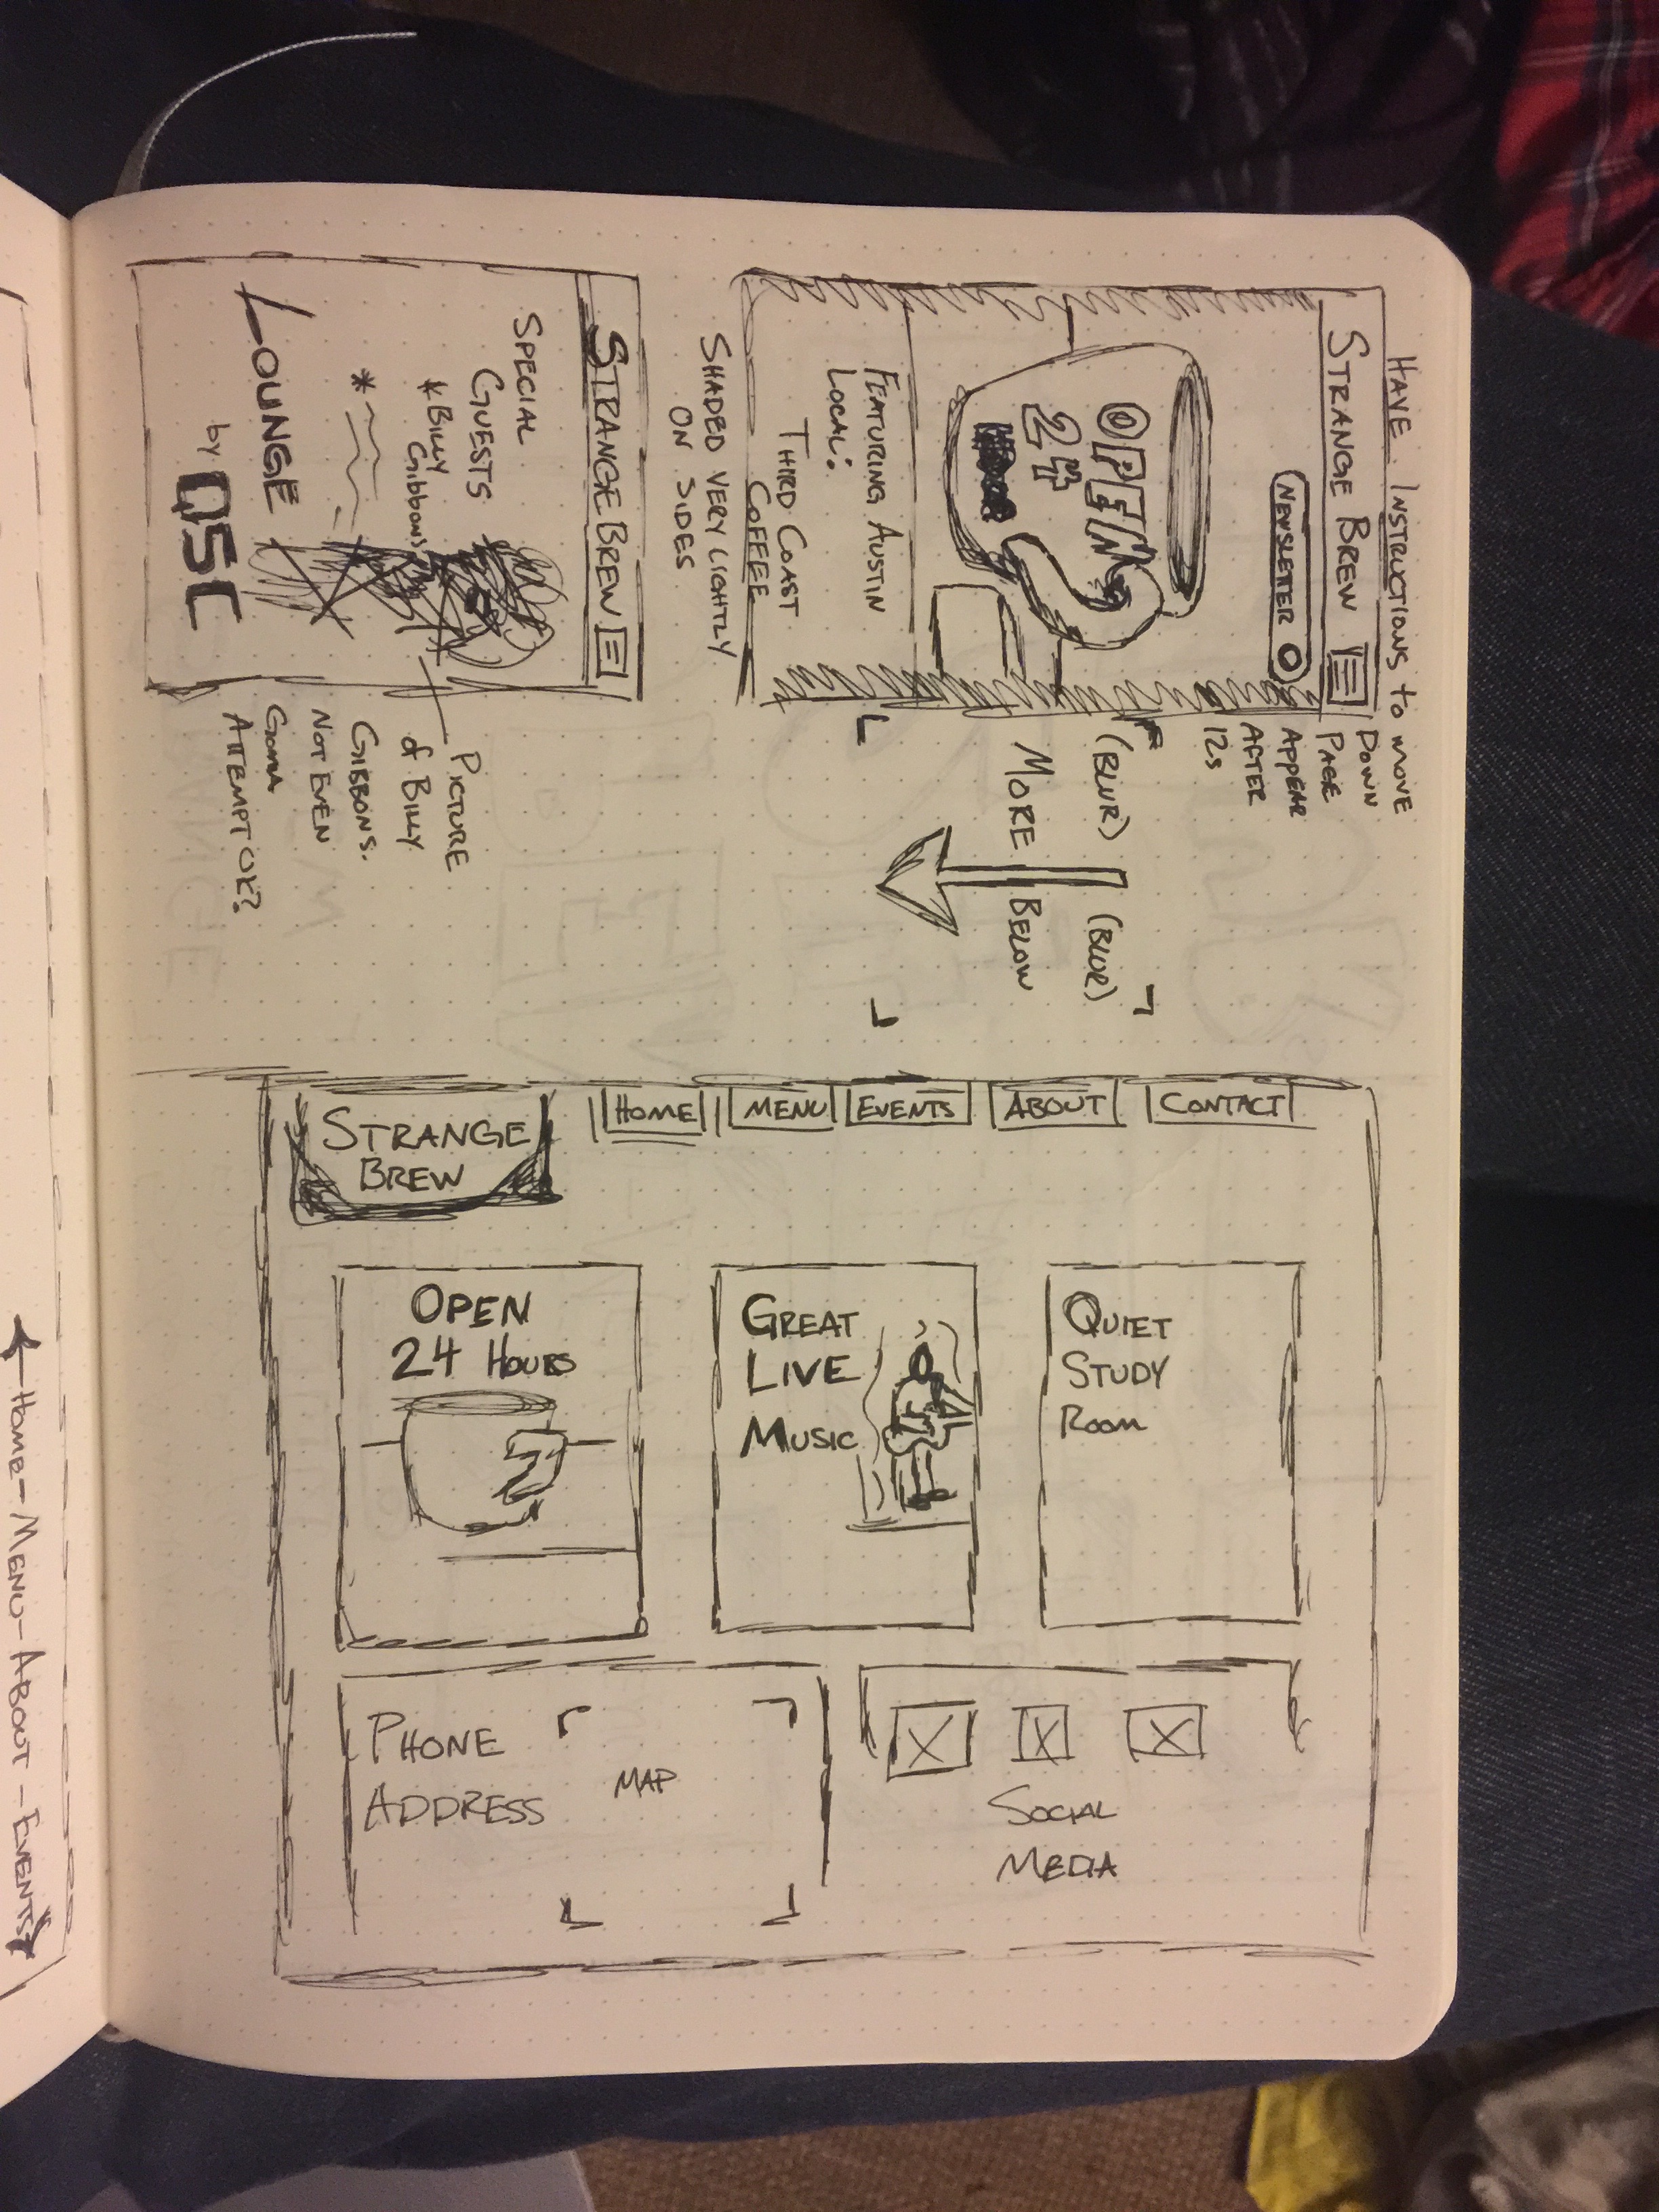 HAVE INSTRUCTIONS to MOVE
DOWN
PAGE
APPEAR
AFTER
12s
STRANGE BREW
NEWSLETTER
OPEN
24
FEATURING AUSTIN
LOCAL:
THIRD COAST
COFFEE
SHADED VERY LIGHTLY
ON SIDES
(BLUR) (BLUR)
MORE BELOW
STRANGE BREW
SPECIAL
GUESTS
*BILLY
Gibbons
*
LOUNGE
by QSC
PICTURE
of BILLY
GIBBONS.
NOT EVEN
GONNA
ATTEMPT OK?
STRANGE
BREW
HOME MENU EVENTS ABOUT CONTACT
OPEN
24 HOURS
GREAT
LIVE
MUSIC
QUIET
STUDY
ROOM
PHONE
ADDRESS
MAP
SOCIAL
MEDIA
HOME-MENU-ABOUT-EVENTS